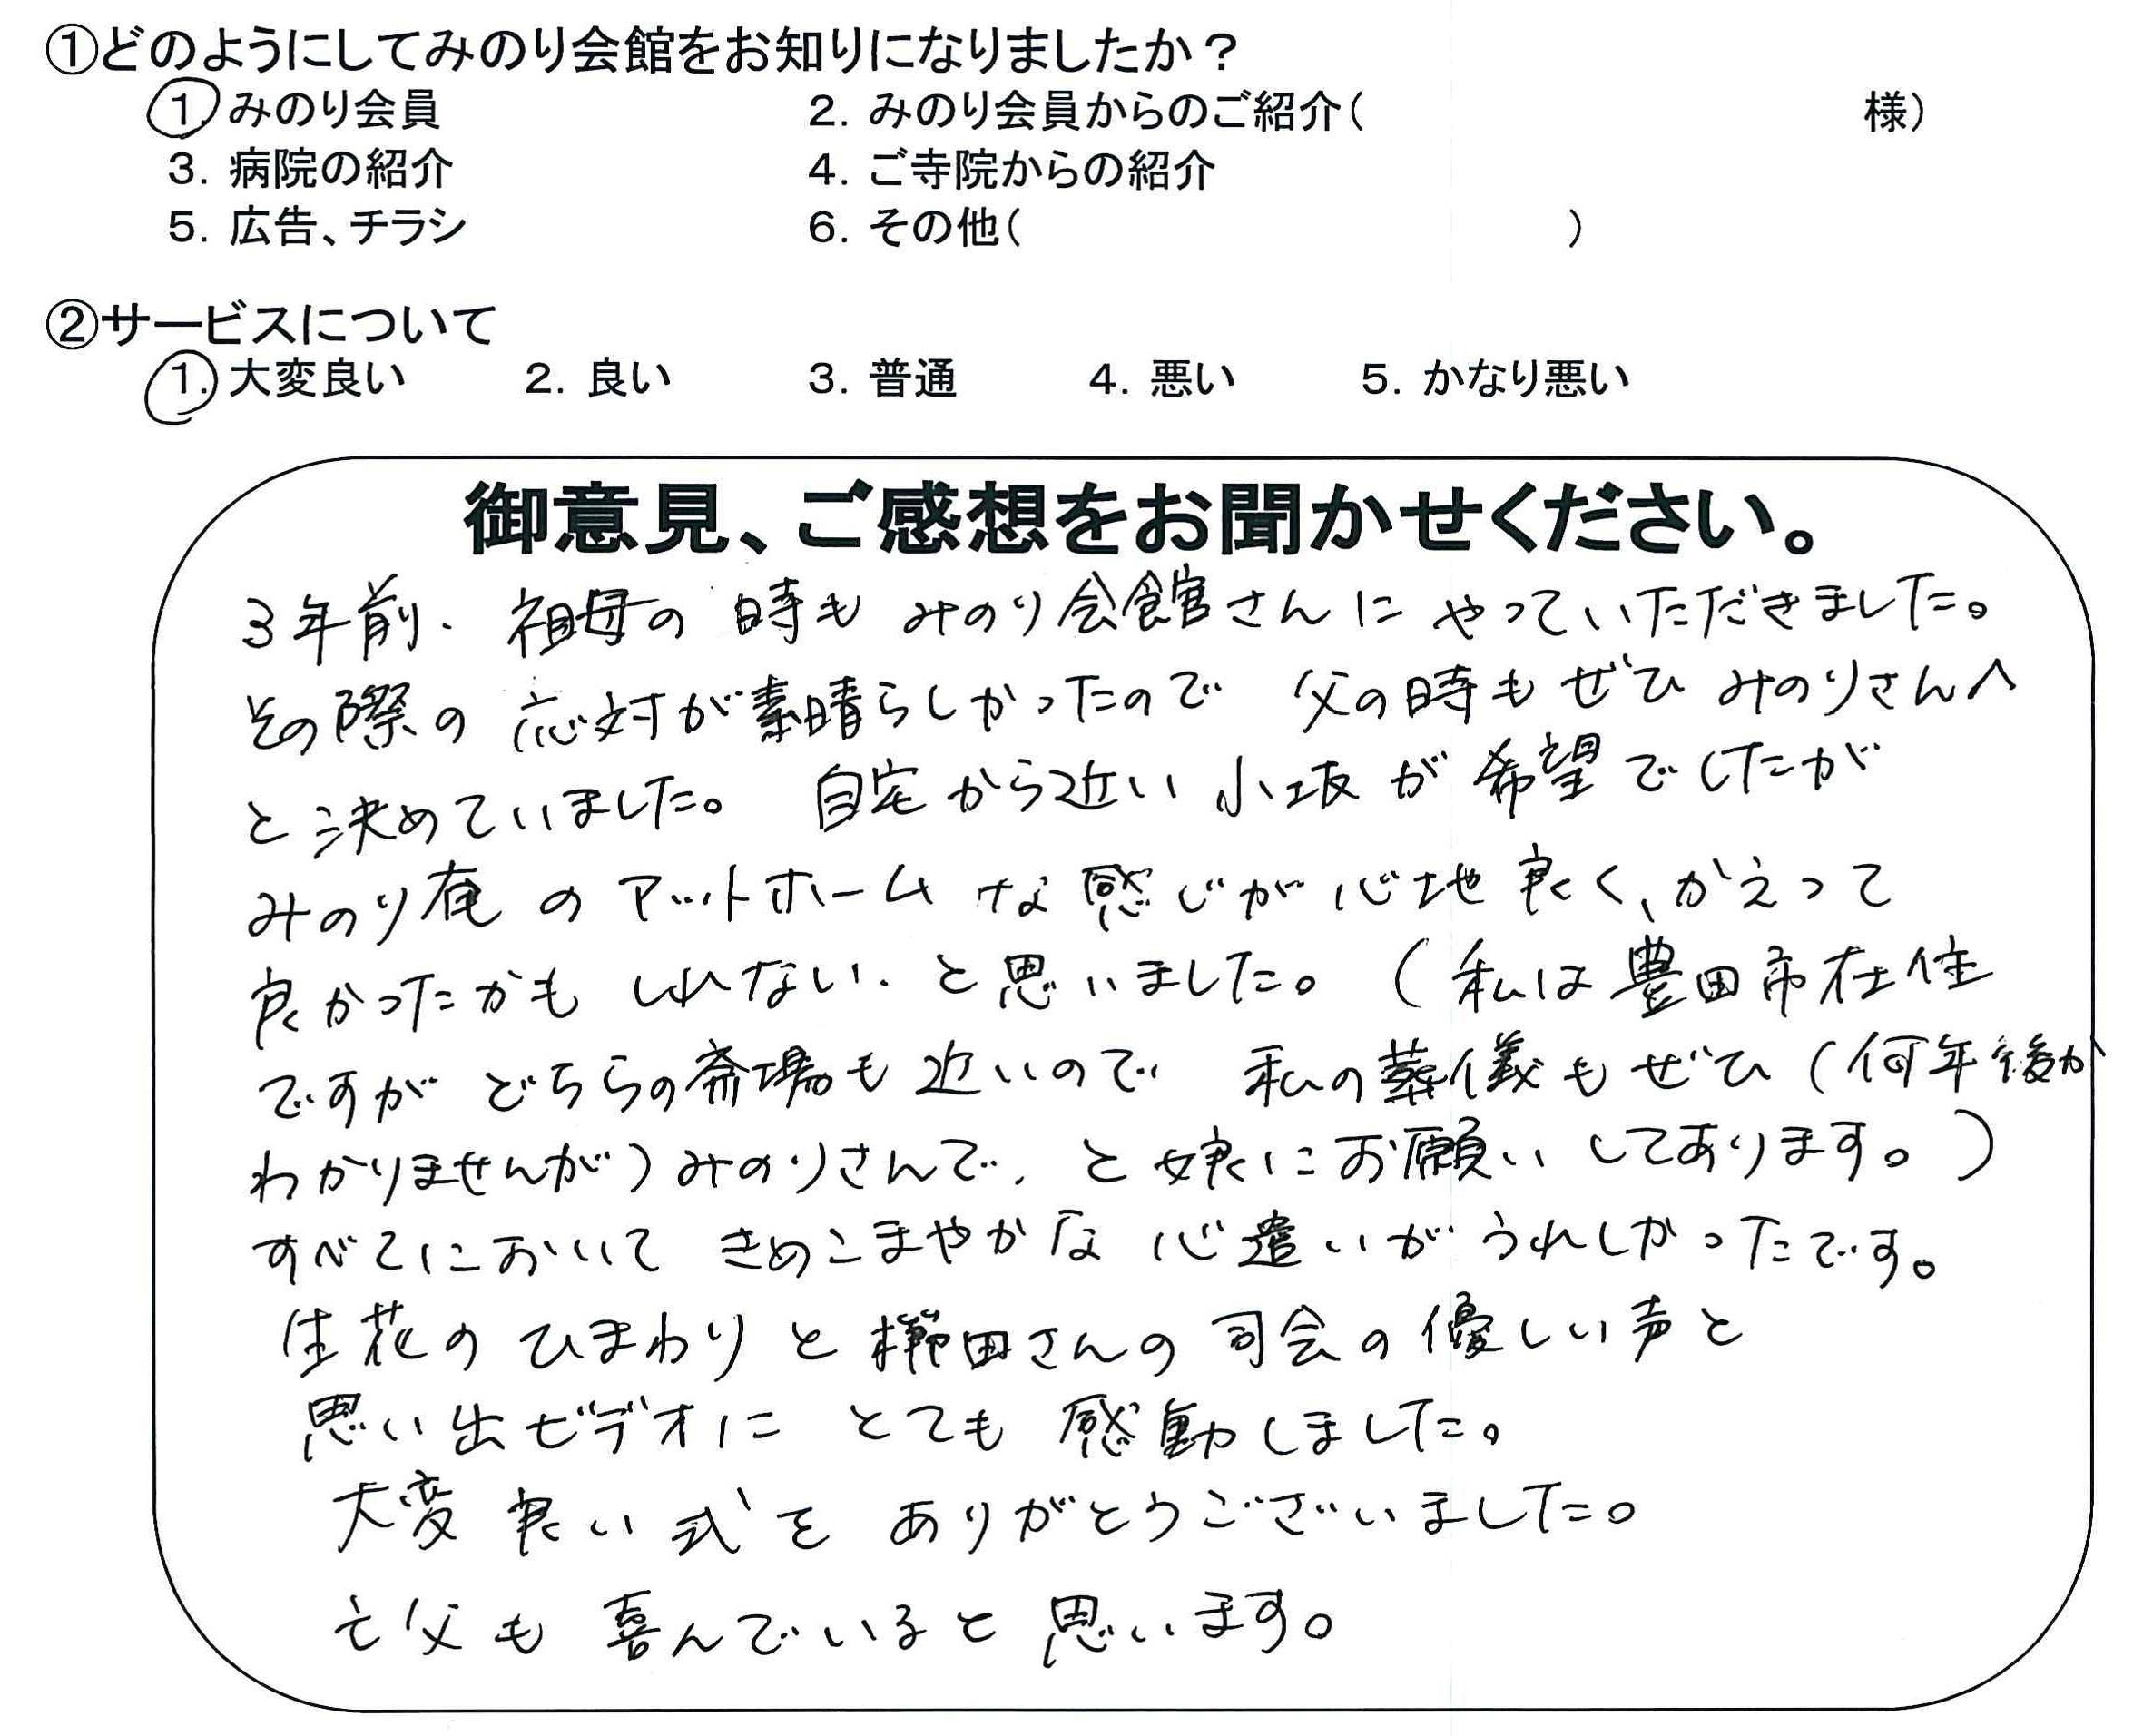 ①どのようにしてみのり会館をお知りになりましたか？
1. みのり会員 2. みのり会員からのご紹介( 様)
3. 病院の紹介 4. ご寺院からの紹介
5. 広告、チラシ 6. その他( )
②サービスについて
1. 大変良い 2. 良い 3. 普通 4. 悪い 5. かなり悪い
御意見、ご感想をお聞かせください。
3年前、祖母の時もみのり会館さんにやっていただきました。
その際の応対が素晴らしかったので 父の時もぜひみのりさんへ
と決めていました。自宅から近い小坂が希望でしたが
みのり庵のアットホームな感じが心地良く、かえって
良かったかもしれない、と思いました。(私は豊田市在住
ですがどちらの斎場も近いので 私の葬儀もぜひ(何年後か
わかりませんが)みのりさんで、と娘にお願いしてあります。)
すべてにおいて きめこまやかな心遣いがうれしかったです。
生花のひまわりと 田さんの司会の優しい声と
思い出ビデオに とても感動しました。
大変良い式を ありがとうございました。
亡父も喜んでいると思います。